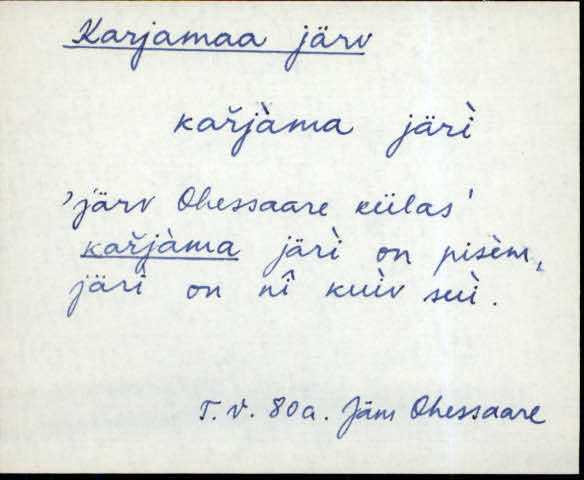 Karjamaa järv
kařjàma järì
'järv Ohessaare külas'
kařjàma järì on pisèm,
järì on nî kuìv suì.
T. V. 80a. Jäm Ohessaare